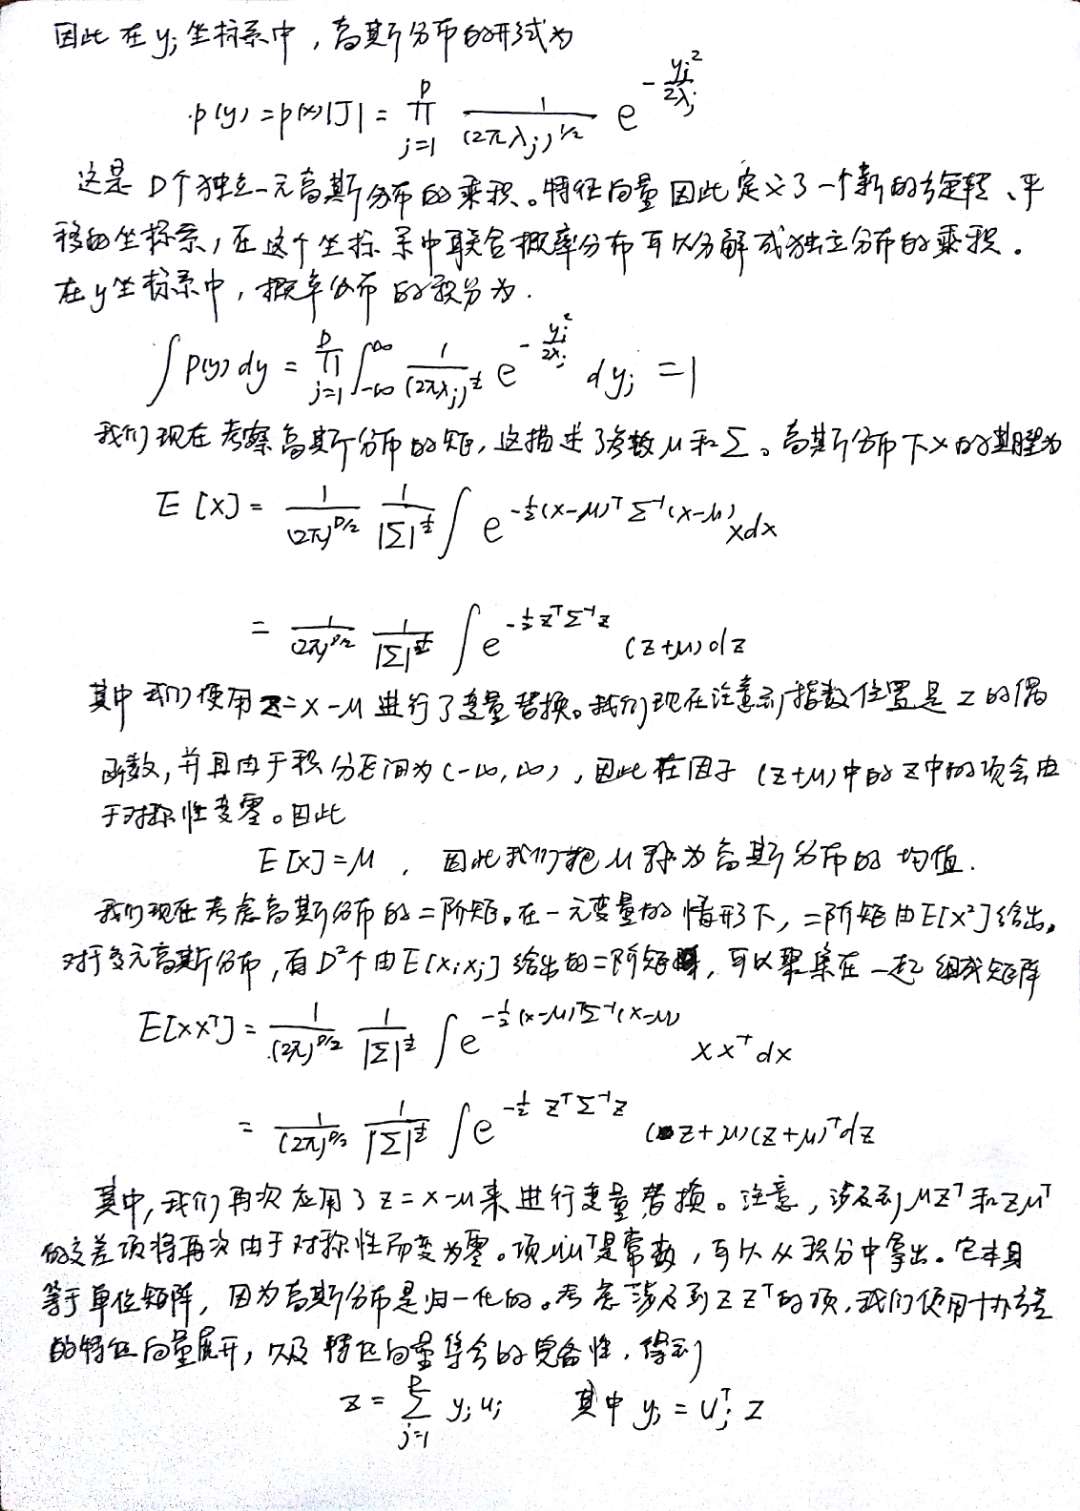 因此在y_j坐标系中，高斯分布的形式为
p(y)=p(x)|J| = ∏_{j=1}^{D} 1/(2πλ_j)^{1/2} e^{-y_j^2/2λ_j}
这是D个独立一元高斯分布的乘积。特征向量因此定义了一个新的旋转、平
移的坐标系，在这个坐标系中联合概率分布可以分解成独立分布的乘积。
在y坐标系中，概率分布的积分为.
∫p(y)dy = ∏_{j=1}^{D} ∫_{-∞}^{∞} 1/(2πλ_j)^{1/2} e^{-y_j^2/2λ_j} dy_j = 1
我们现在考察高斯分布的矩，这描述了参数μ和Σ。高斯分布下x的期望为
E[x] = 1/(2π)^{D/2} 1/|Σ|^{1/2} ∫e^{-1/2(x-μ)^TΣ^{-1}(x-μ)} xdx
= 1/(2π)^{D/2} 1/|Σ|^{1/2} ∫e^{-1/2 z^TΣ^{-1}z} (z+μ)dz
其中我们使用z=x-μ进行了变量替换。我们现在注意到指数位置是z的偶
函数，并且由于积分区间为(-∞,∞)，因此在因子(z+μ)中的z中的项会由
于对称性变零。因此
E[x]=μ，因此我们把μ称为高斯分布的均值.
我们现在考虑高斯分布的二阶矩。在一元变量的情形下，二阶矩由E[x²]给出。
对于多元高斯分布，有D²个由E[x_ix_j]给出的二阶矩，可以聚集在一起组成矩阵
E[xx^T] = 1/(2π)^{D/2} 1/|Σ|^{1/2} ∫e^{-1/2(x-μ)^TΣ^{-1}(x-μ)} xx^T dx
= 1/(2π)^{D/2} 1/|Σ|^{1/2} ∫e^{-1/2 z^TΣ^{-1}z} (z+μ)(z+μ)^T dz
其中，我们再次应用了z=x-μ来进行变量替换。注意，涉及到μz^T和zμ^T
的交差项将再次由于对称性而变为零。项μμ^T是常数，可以从积分中拿出。它本身
等于单位矩阵，因为高斯分布是归一化的。考虑涉及到zz^T的项，我们使用协方差
的特征向量展开，以及特征向量集合的完备性，得到
z = ∑_{j=1}^{D} y_ju_j 其中 y_j = u_j^T z